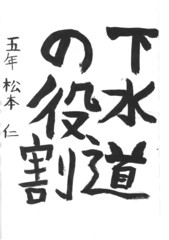 下水道
の役割
五年 松本 仁